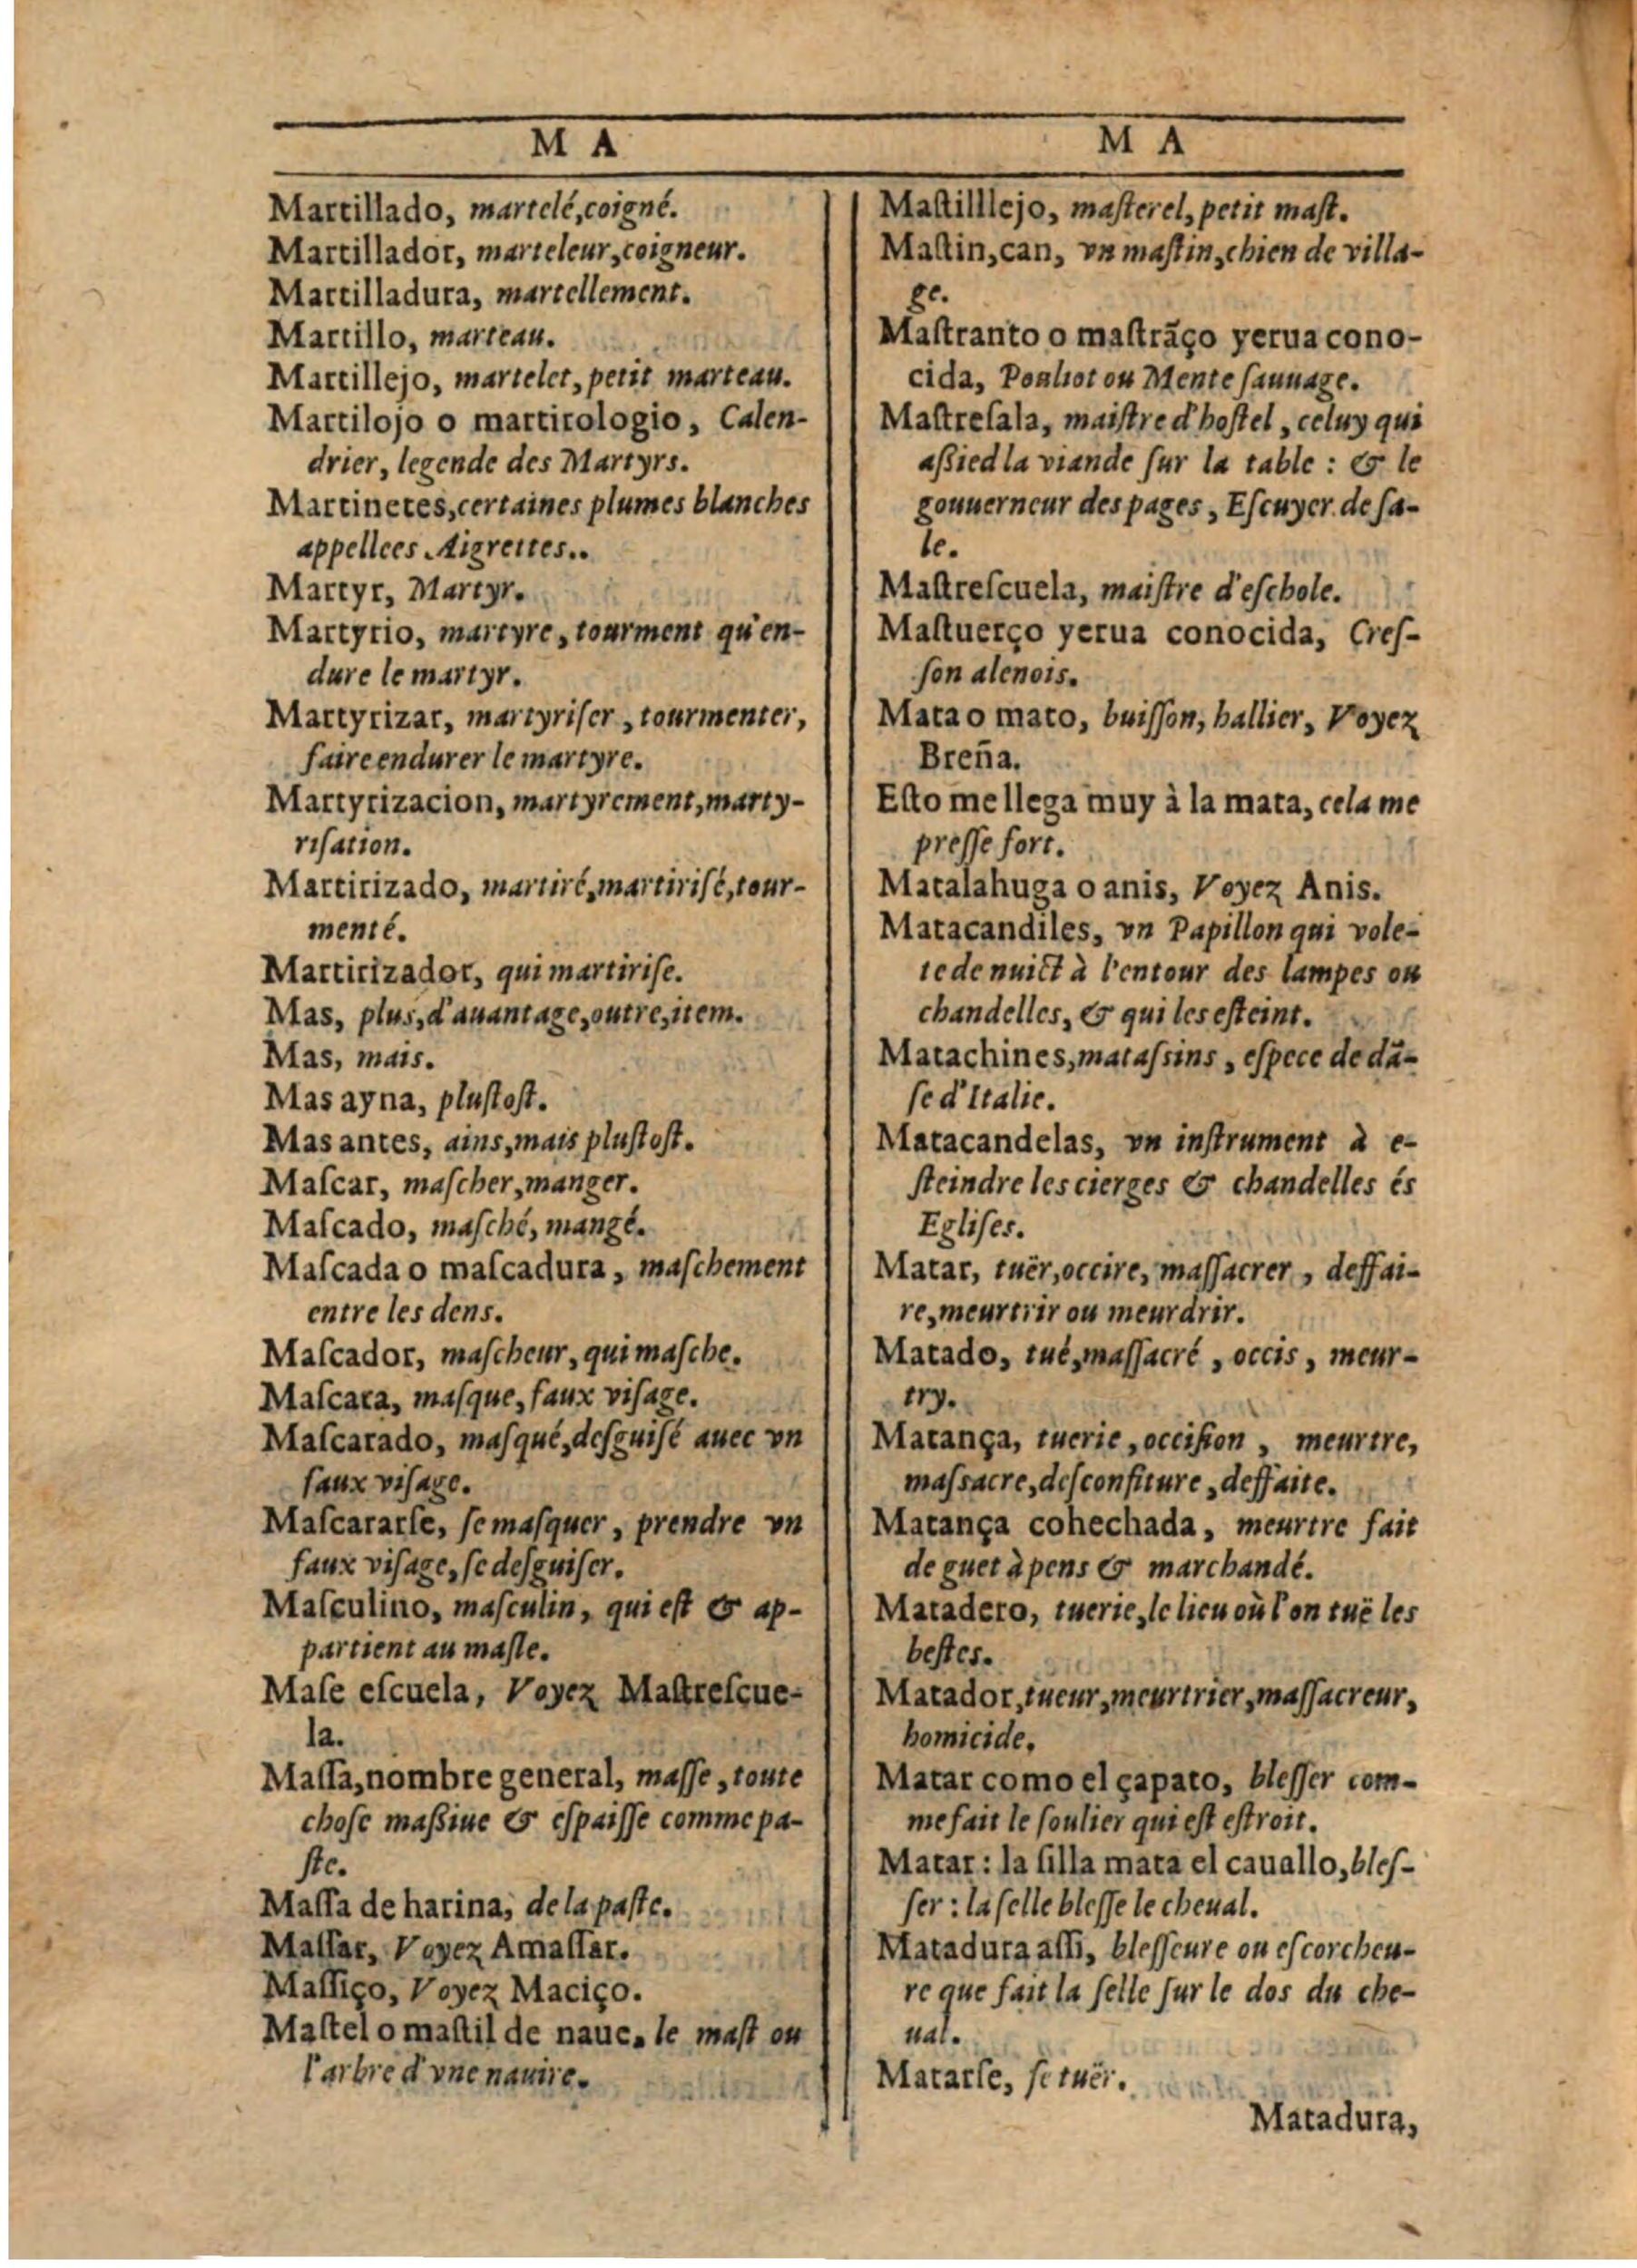 M A
Martillado, martelé,coigné.
Martillador, marteleur,coigneur.
Martilladura, martellement.
Martillo, marteau.
Martillejo, martelet, petit marteau.
Martilojo o martirologio, Calen-
drier, legende des Martyrs.
Martinetes,certaines plumes blanches
appellees Aigrettes..
Martyr, Martyr.
Martyrio, martyre, tourment qu'en-
dure le martyr.
Martyrizar, martyriſer, tourmenter,
faire endurer le martyre.
Martyrizacion, martyrement,marty-
riſation.
Martirizado, martiré,martiriſé,tour-
menté.
Martirizador, qui martiriſe.
Mas, plus,d'auantage,outre,item.
Mas, mais.
Mas ayna, pluſtoſt.
Mas antes, ains,mais pluſtoſt.
Maſcar, maſcher,manger.
Maſcado, maſché, mangé.
Maſcada o maſcadura, maſchement
entre les dens.
Maſcador, maſcheur, qui maſche.
Maſcara, maſque, faux viſage.
Maſcarado, maſqué,deſguiſé auec vn
faux viſage.
Maſcararſe, ſe maſquer, prendre vn
faux viſage, ſe deſguiſer.
Maſculino, maſculin, qui eſt & ap-
partient au maſle.
Maſe eſcuela, Voyez Maſtreſcue-
la.
Maſſa,nombre general, maſſe, toute
choſe maßiue & eſpaiſſe comme pa-
ſte.
Maſſa de harina, de la paſte.
Maſſar, Voyez Amaſſar.
Maſſiço, Voyez Maciço.
Maſtel o maſtil de naue. le maſt ou
l'arbre d'vne nauire.
M A
Maſtilllejo, maſterel, petit maſt.
Maſtin,can, vn maſtin,chien de villa-
ge.
Maſtranto o maſtrãço yerua cono-
cida, Pouliot ou Mente ſauuage.
Maſtreſala, maiſtre d'hoſtel, celuy qui
aßied la viande ſur la table : & le
gouuerneur des pages, Eſcuyer de ſa-
le.
Maſtreſcuela, maiſtre d'eſchole.
Maſtuerço yerua conocida, Creſ-
ſon alenois.
Mata o mato, buiſſon, hallier, Voyez
Breña.
Eſto me llega muy à la mata, cela me
preſſe fort.
Matalahuga o anis, Voyez Anis.
Matacandiles, vn Papillon qui vole-
te de nuict à l'entour des lampes ou
chandelles, & qui les eſteint.
Matachines,mataſsins, eſpece de dã-
ſe d'Italie.
Matacandelas, vn inſtrument à e-
ſteindre les cierges & chandelles és
Egliſes.
Matar, tuër,occire, maſſacrer, deffai-
re,meurtrir ou meurdrir.
Matado, tué,maſſacré, occis, meur-
try.
Matança, tuerie, occiſion, meurtre,
maſsacre,deſconfiture, deffaite.
Matança cohechada, meurtre fait
de guet à pens & marchandé.
Matadero, tuerie,le lieu où l'on tuë les
beſtes.
Matador,tueur,meurtrier,maſſacreur,
homicide.
Matar como el çapato, bleſſer com-
me fait le ſoulier qui eſt eſtroit.
Matar : la ſilla mata el cauallo,bleſ-
ſer : la ſelle bleſſe le cheual.
Matadura aſſi, bleſſeure ou eſcorcheu-
re que fait la ſelle ſur le dos du che-
ual.
Matarſe, ſe tuër.
Matadura,